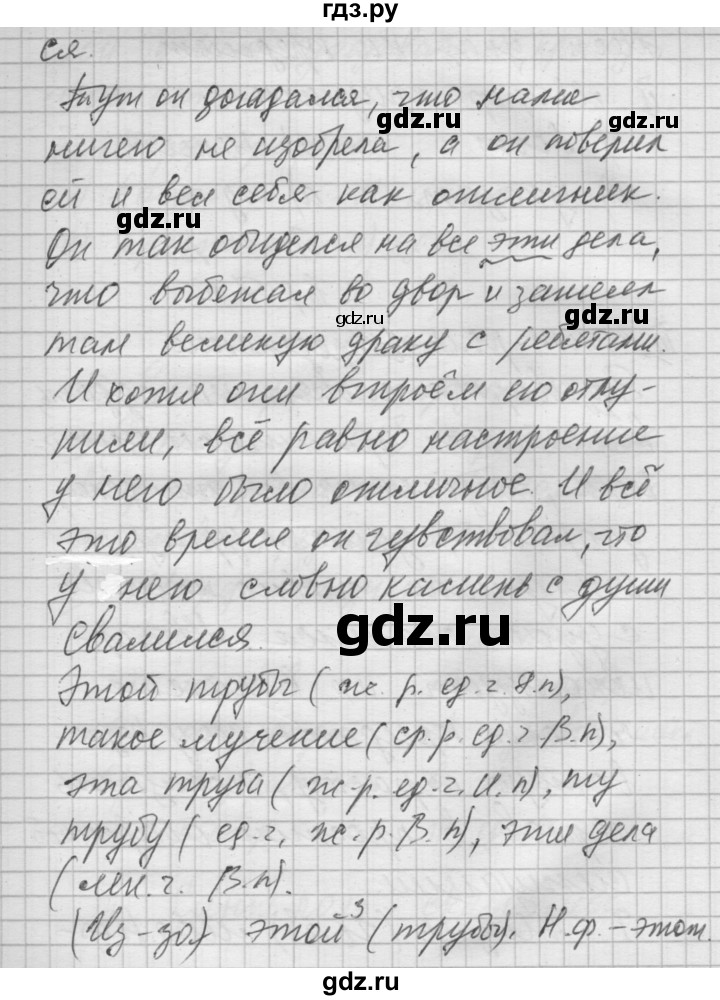 гдз.ру
ся.
Тут он догадался, что мама
gdz.ru gdz.ru
ничего не изобрела, а он поверил
ей и вел себя как отличник.
gdz.ru gdz.ru
Он так обиделся на все эти дела,
что выбежал во двор и затеял
gdz.ru
там великую драку с ребятами.
И хотя они втроём его отлу-
пили, всё равно настроение
у него было отличное. И всё
это время он чувствовал, что
у него словно камень с души
свалился.
gdz.ru
Этой трубы (ж. р. ед. ч. Р. п),
такое мучение (ср. р. ед. ч. В. п),
эта труба (ж. р. ед. ч. И. п), ту
трубу (ед. ч. ж. р. В. п), эти дела
(мн. ч. В. п).
gdz.ru gdz.ru
(Из-за) этой³ (трубы). Н. ф. – этот.
gdz.ru gdz.ru